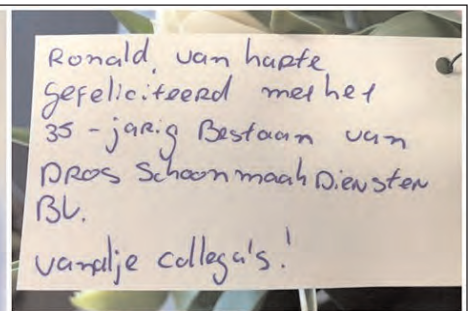 Ronald, van harte
gefeliciteerd met het
35-jarig Bestaan van
DROS Schoonmaak Diensten
BV.
van al je collega's!